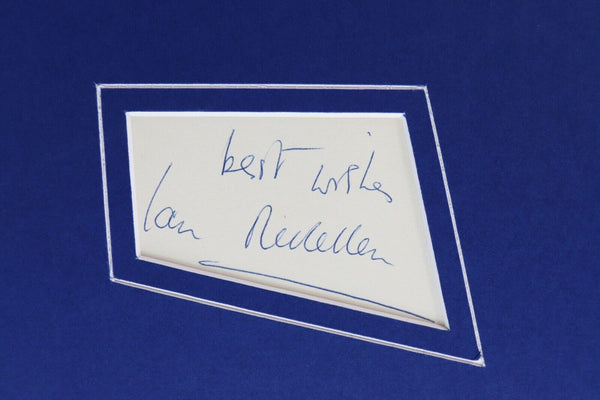 best wishes
Ian McKellen